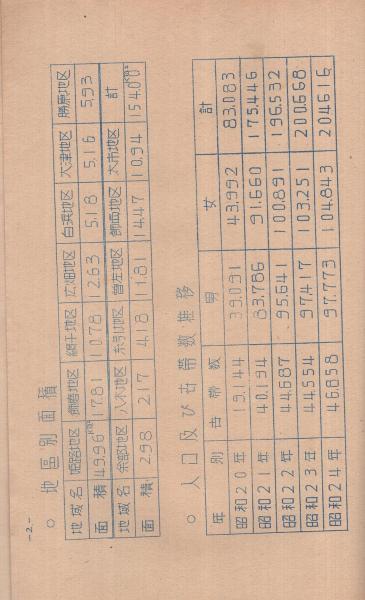 -2-
○ 地區別面積
地域名 姫路地区 飾磨地区 網干地区 広畑地区 白浜地区 大津地区 勝原地区
面積 49.96km² 17.81 10.78 12.63 5.18 5.16 5.93
地域名 余部地区 八木地区 糸引地区 曾左地区 飾西地区 太市地区 計
面積 2.98 2.17 4.18 11.81 14.47 10.94 154.00km²
○ 人口及び世帯数推移
年別 世帯数 男 女 計
昭和20年 19.144 39.091 43.992 83.083
昭和21年 40.194 83.786 91.660 175.446
昭和22年 44.687 95.641 100.891 196.532
昭和23年 44.554 97.417 103.251 200.668
昭和24年 46.858 97.773 104.843 204.616